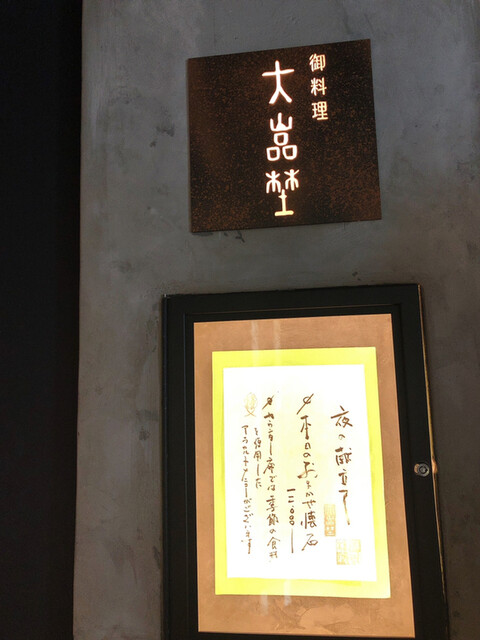 御料理
大嵓埜
夜の献立
〆本日のおまかせ懐石
一二、〇〇〇
〆カウンター席では季節の食材
を使用した
アラカルトメニューがございます